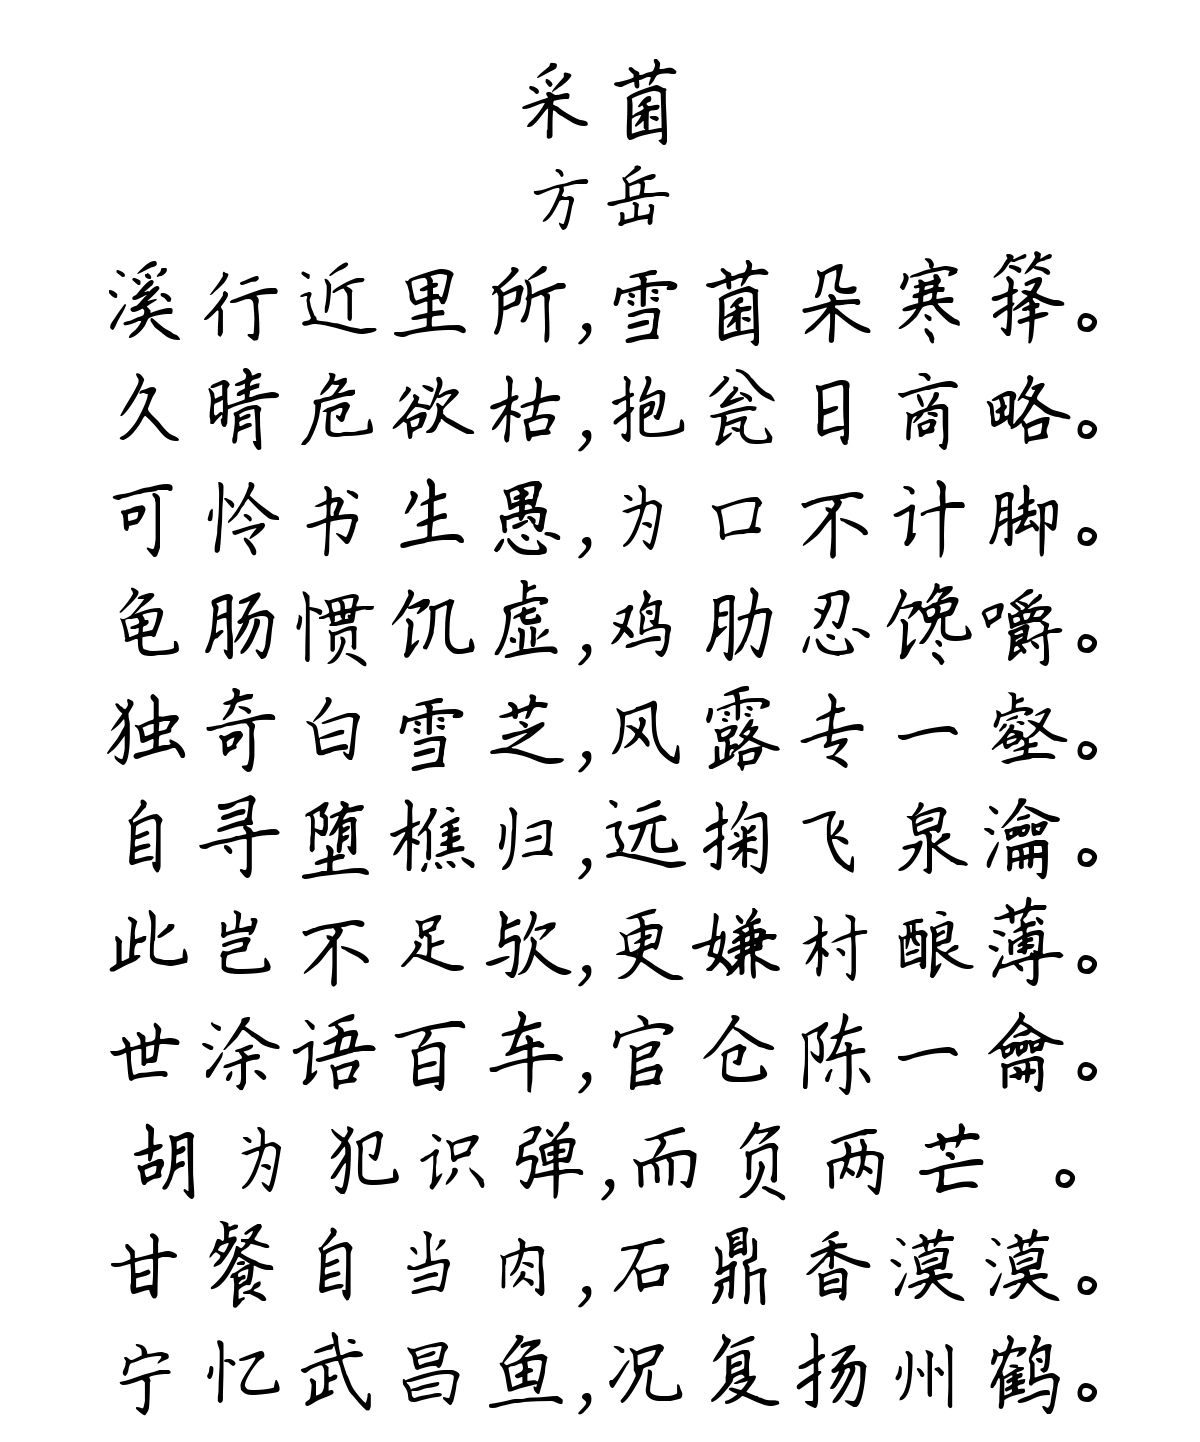 采菌
方岳
溪行近里所,雪菌朵寒箨。
久晴危欲枯,抱瓮日商略。
可怜书生愚,为口不计脚。
龟肠惯饥虚,鸡肋忍馋嚼。
独奇白雪芝,风露专一壑。
自寻堕樵归,远掬飞泉瀹。
此岂不足欤,更嫌村酿薄。
世涂语百车,官仓陈一龠。
胡为犯识弹,而负两芒 。
甘餐自当肉,石鼎香漠漠。
宁忆武昌鱼,况复扬州鹤。